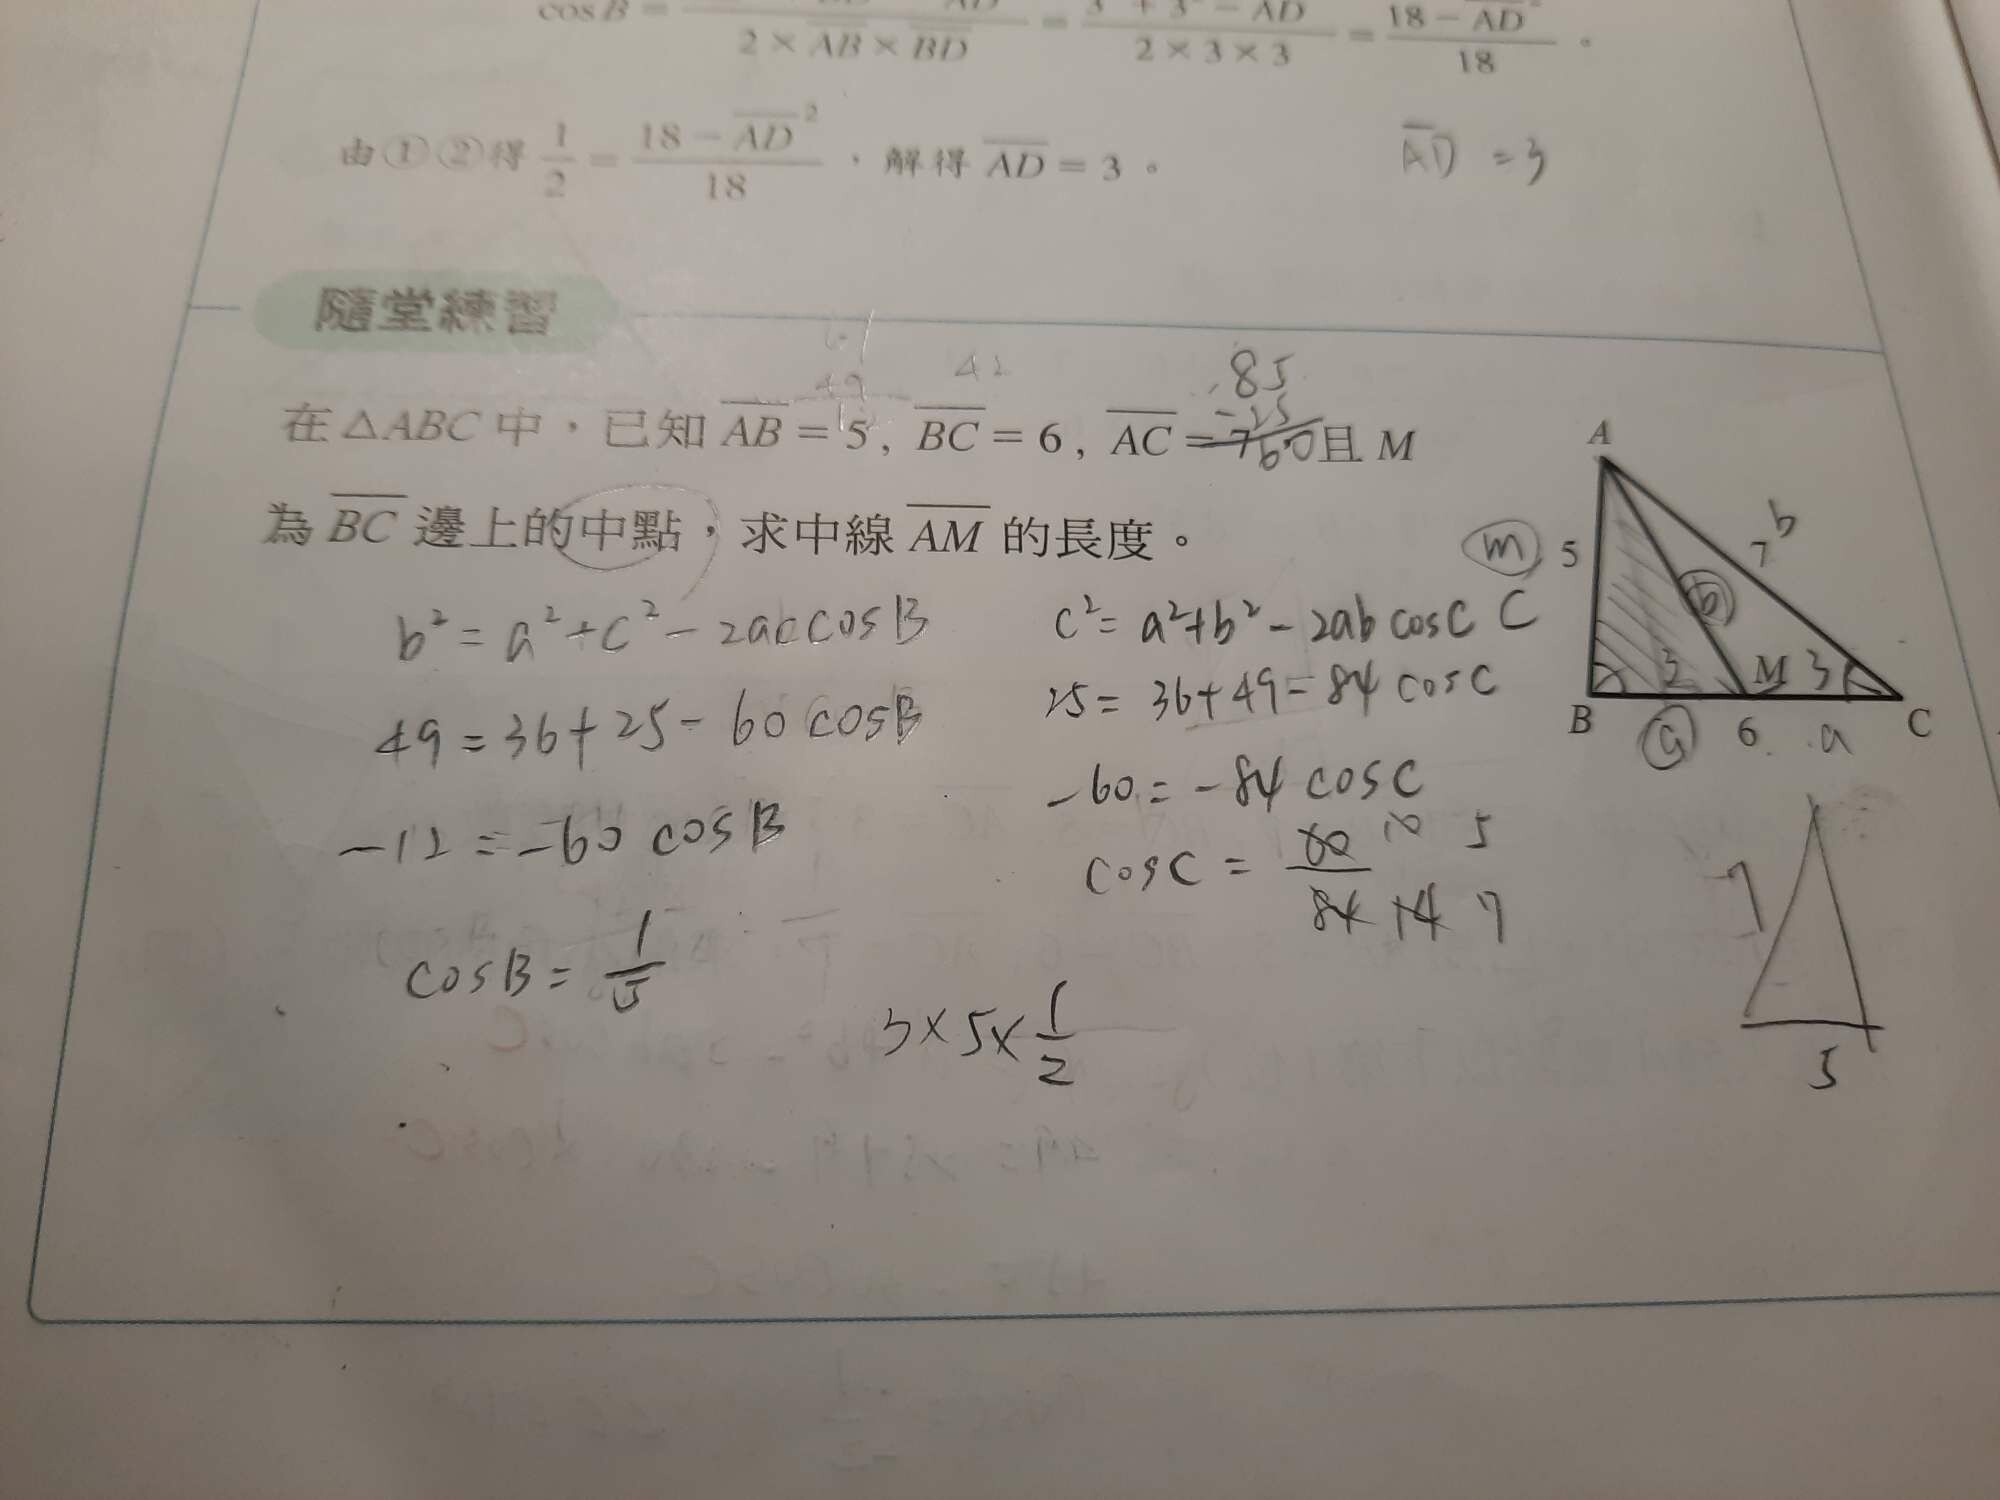 cos B = 2 × AB × BD = 3 + 3 − AD 2 × 3 × 3 = 18 − AD² 18 。
由①②得 1/2 = 18 − AD² / 18 ，解得 AD = 3 。
AD = 3
隨堂練習
49
42
85
-25
60
在△ABC 中，已知 AB = 5, BC = 6, AC = 7 且 M
為 BC 邊上的中點，求中線 AM 的長度。
b² = a² + c² − 2ac cosB
49 = 36 + 25 − 60 cosB
−12 = −60 cosB
cosB = 1/5
c² = a² + b² − 2ab cosC C
25 = 36 + 49 − 84 cosC
−60 = −84 cosC
cosC = 60/84 10/14 5/7
3 × 5 × 1/2
A
m 5 b 7 b
3 M 3
B a 6 a C
7
5